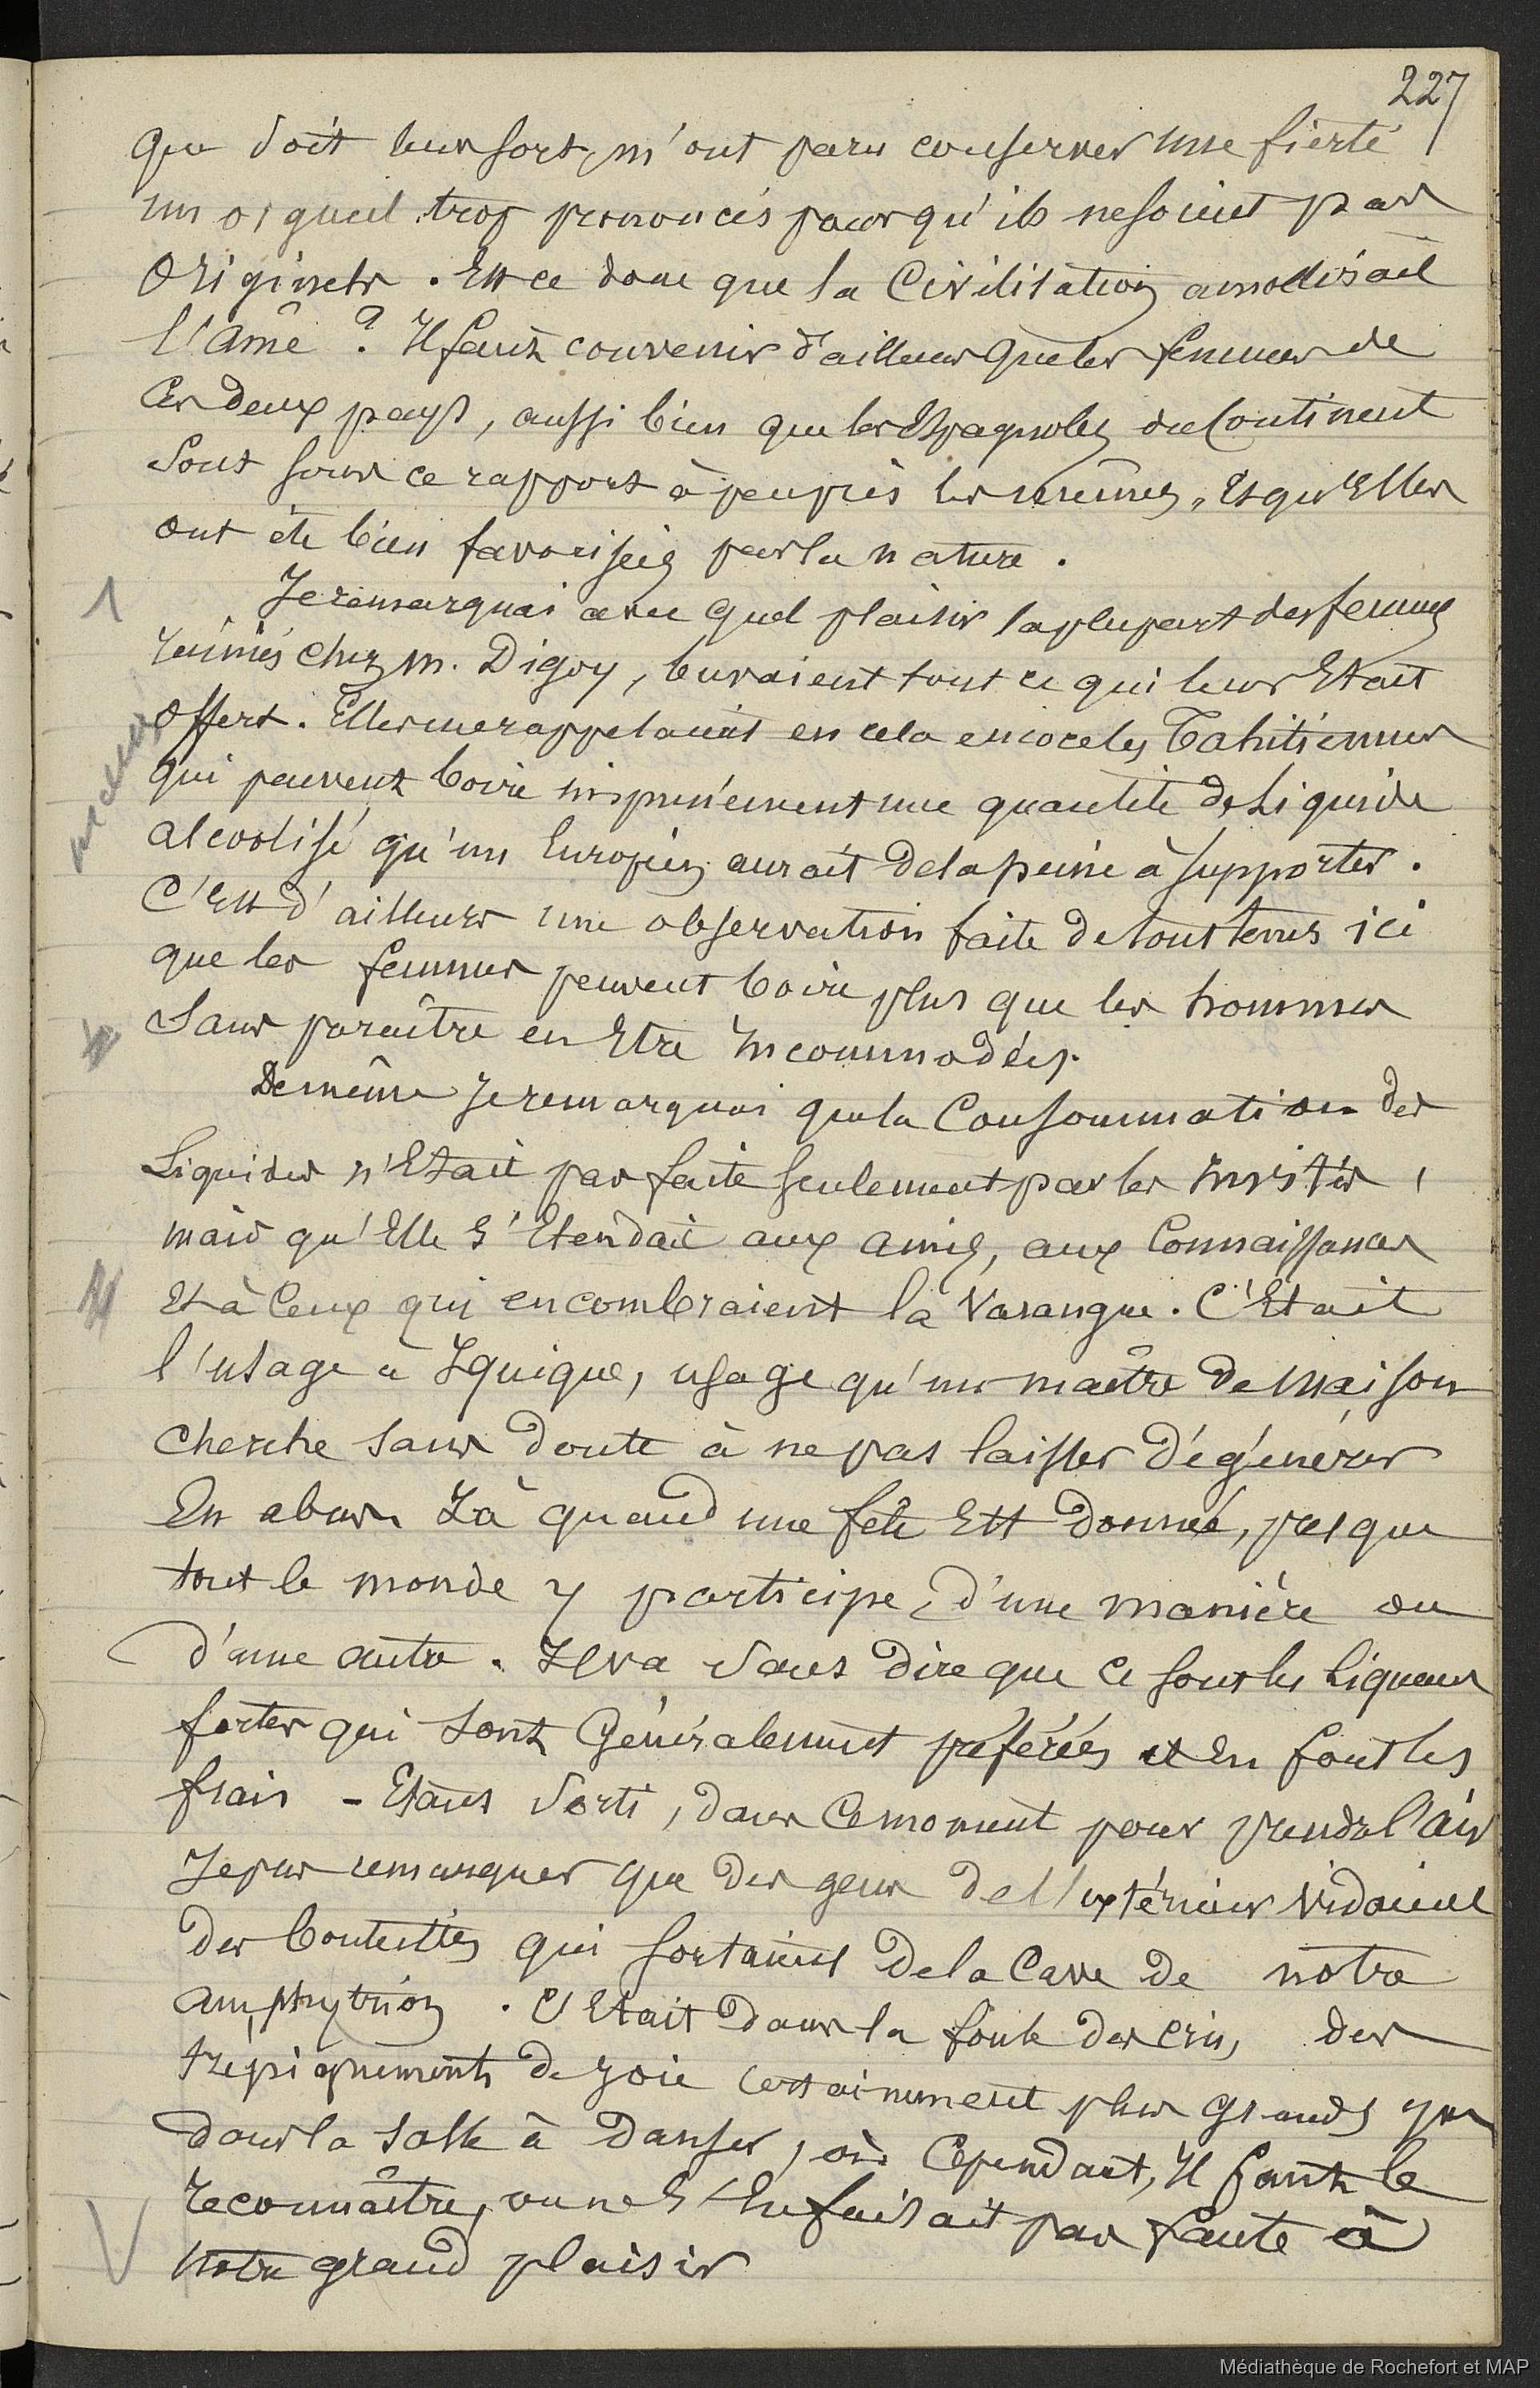 227
que soit leur sort, m'ont paru conserver une fierté
un orgueil trop prononcés pour qu'ils ne soient pas
originels. Est ce donc que la Civilisation amollisait
l'âme ? Il faut convenir d'ailleurs que les femmes de
Ces deux pays, aussi bien que les Espagnoles du Continent
Sont sous ce rapport à peu près les mêmes, Et qu'Elles
ont été bien favorisées par la nature.
1
Je remarquai avec quel plaisir la plupart des femmes
réunies chez M. Digoy, buvaient tout ce qui leur Etait
offert. Elles me rappelaient en cela encore les Tahitiennes
qui peuvent boire impunément une quantité de Liquide
alcoolisé qu'un Européen aurait de la peine à supporter.
C'est d'ailleurs une observation faite de tous temps ici
que les femmes peuvent boire plus que les hommes
Sans paraître en Etre Incommodées.
De même Je remarquai que la Consommation des
Liquides n'Etait pas faite seulement par les Invités,
mais qu'Elle s'Etendait aux amis, aux Connaissances
Et à Ceux qui encombraient la Varangue. C'Etait
l'usage à Iquique, usage qu'un maître de Maison
cherche sans doute à ne pas laisser dégénérer
En abus. Là quand une fête Est donnée, presque
tout le monde y participe, d'une manière ou
d'une autre. Il va sans dire que ce sont les Liqueurs
fortes qui sont Généralement préférées et En font les
frais - Etant sorti, dans Ce moment pour prendre l'air
Je pus remarquer que des gens de l'extérieur vidaient
des bouteilles qui sortaient de la Cave de notre
amphytrion. C'Etait dans la foule des cris, des
trépignements de joie certainement plus grands que
dans la salle à danser, où Cependant, Il faut le
reconnaître, on ne s'En faisait pas faute à
notre grand plaisir
Médiathèque de Rochefort et MAP